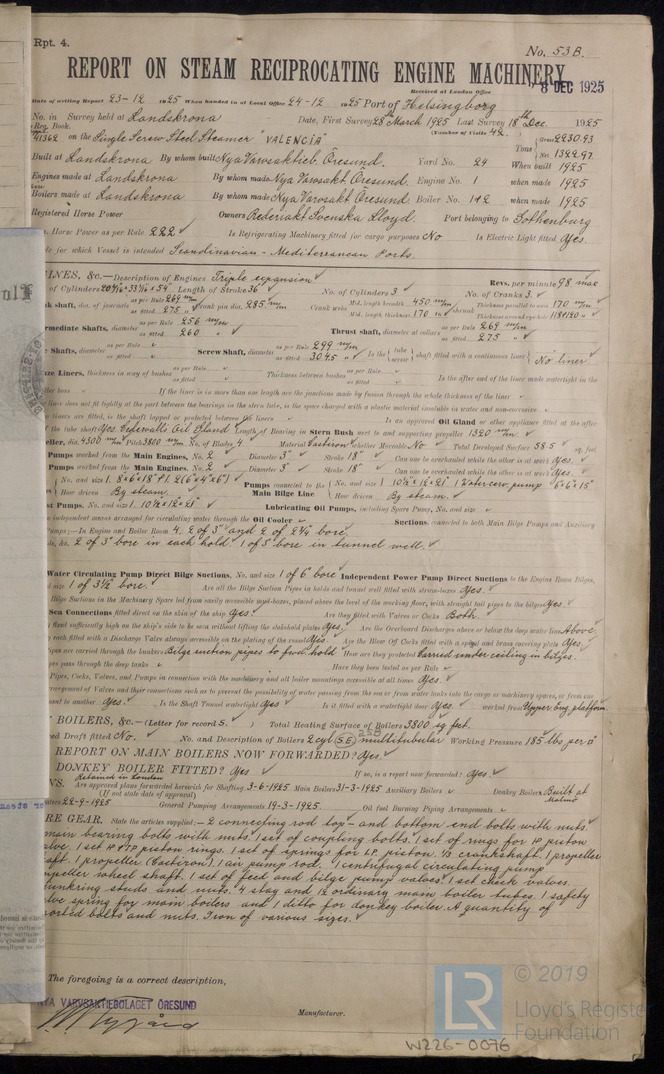 Rpt. 4.
No. 53B.
REPORT ON STEAM RECIPROCATING ENGINE MACHINERY.
Received at London Office 8 DEC 1925
Date of writing Report 23-12 1925 When handed in at Local Office 24-12 1925 Port of Helsingborg
No. in Survey held at Landskrona Date, First Survey 28th March 1925 Last Survey 18th Dec. 1925
Reg. Book. (Number of Visits 42.)
41362 on the Single Screw Steel Steamer "VALENCIA" Tons Gross 2230.93 Net 1322.97
Built at Landskrona By whom built Nya Varvsaktieb. Öresund. Yard No. 24 When built 1925
Engines made at Landskrona By whom made Nya Varvsakt. Öresund. Engine No. 1 when made 1925
Boilers made at Landskrona By whom made Nya Varvsakt. Öresund Boiler No. 1+2 when made 1925
Registered Horse Power Owners Rederiakt Svenska Lloyd. Port belonging to Gothenburg
Horse Power as per Rule 222 Is Refrigerating Machinery fitted for cargo purposes No Is Electric Light fitted Yes.
for which Vessel is intended Scandinavian - Mediterranean Ports.
INES, &c.—Description of Engines Triple expansion Revs. per minute 98 max
of Cylinders Length of Stroke 36" No. of Cylinders 3 No. of Cranks 3.
shaft, dia. of journals as per Rule 269 m/m as fitted 275 Crank pin dia. 285 m/m Crank webs Mid. length breadth 450 m/m Mid. length thickness 170 m shrunk Thickness parallel to axis 170 m/m Thickness around eye hole
rmediate Shafts, diameter as per Rule 256 m/m as fitted 260 Thrust shaft, diameter at collars as per Rule 269 m/m as fitted 275
e Shafts, diameter as per Rule as fitted Screw Shaft, diameter as per Rule 299 m/m as fitted 304.5 Is the tube screw shaft fitted with a continuous liner No liner
ze Liners, thickness in way of bushes as per Rule as fitted Thickness between bushes as per Rule as fitted Is the after end of the liner made watertight in the
ller boss If the liner is in more than one length are the junctions made by fusion through the whole thickness of the liner
liner does not fit tightly at the part between the bearings in the stern tube, is the space charged with a plastic material insoluble in water and non-corrosive
liners are fitted, is the shaft lapped or protected between the liners Is an approved Oil Gland or other appliance fitted at the after
the tube shaft Yes Cederwalls Oil Gland Length of Bearing in Stern Bush next to and supporting propeller 1320 m/m
eller, dia. 4300 m/m Pitch 3800 m/m No. of Blades 4 Material Cast iron whether Moveable No Total Developed Surface 58.5 sq. feet
Pumps worked from the Main Engines, No. 2 Diameter 3" Stroke 18" Can one be overhauled while the other is at work Yes.
Pumps worked from the Main Engines, No. 2 Diameter 3" Stroke 18" Can one be overhauled while the other is at work Yes.
No. and size 1. 8"x6"x18" & 1. 2(6"x4"x6") Pumps connected to the Main Bilge Line No. and size 1 10½"x12"x21" 1 Watercirc. pump 6"x6"x15"
How driven By steam. How driven By steam.
st Pumps, No. and size 1. 10½"x12"x21" Lubricating Oil Pumps, including Spare Pump, No. and size
independent means arranged for circulating water through the Oil Cooler Suctions, connected to both Main Bilge Pumps and Auxiliary
umps;—In Engine and Boiler Room 4. 2 of 3" and 2 of 2¼ bore.
ds, &c. 2 of 3" bore in each hold. 1 of 3" bore in tunnel well.
Water Circulating Pump Direct Bilge Suctions, No. and size 1 of 6" bore Independent Power Pump Direct Suctions to the Engine Room Bilges,
size 1 of 3½" bore. Are all the Bilge Suction Pipes in holds and tunnel well fitted with strum-boxes Yes.
Bilge Suctions in the Machinery Space led from easily accessible mud-boxes, placed above the level of the working floor, with straight tail pipes to the bilges Yes.
Sea Connections fitted direct on the skin of the ship Yes. Are they fitted with Valves or Cocks Both.
fixed sufficiently high on the ship's side to be seen without lifting the stokehold plates Yes. Are the Overboard Discharges above or below the deep water line Above
each fitted with a Discharge Valve always accessible on the plating of the vessel Yes. Are the Blow Off Cocks fitted with a spigot and brass covering plate Yes.
pes are carried through the bunkers Bilge suction pipes to fwd. hold How are they protected Carried under ceiling in bilges.
pes pass through the deep tanks Have they been tested as per Rule
Pipes, Cocks, Valves, and Pumps in connection with the machinery and all boiler mountings accessible at all times Yes.
rrangement of Valves and their connections such as to prevent the possibility of water passing from the sea or from water tanks into the cargo or machinery spaces, or from one
ment to another Yes. Is the Shaft Tunnel watertight Yes Is it fitted with a watertight door Yes. worked from Upper eng. platform
BOILERS, &c.—(Letter for record S.) Total Heating Surface of Boilers 3800 sq. feet.
ed Draft fitted No. No. and Description of Boilers 2 cyl (S.E.) multitubular Working Pressure 185 lbs per □"
REPORT ON MAIN BOILERS NOW FORWARDED? Yes
DONKEY BOILER FITTED? Yes If so, is a report now forwarded? Yes.
Retained in London
NS. Are approved plans forwarded herewith for Shafting 3-6-1925 Main Boilers 31-3-1925 Auxiliary Boilers Donkey Boilers Built at Malmö
(If not state date of approval)
22-9-1925 General Pumping Arrangements 19-3-1925. Oil fuel Burning Piping Arrangements
RE GEAR. State the articles supplied:— 2 connecting rod top- and bottom end bolts with nuts.
main bearing bolts with nuts. 1 set of coupling bolts. 1 set of rings for HP piston
lve. 1 set HP & IP piston rings. 1 set of springs for LP. piston. 1/3 crankshaft. 1 propeller
aft. 1 propeller (Castiron). 1 air pump rod. 1 centrifugal circulating pump
mpeller wheel shaft. 1 set of feed and bilge pump valves. 1 set check valves.
unkring studs and nuts. 4 stay and 12 ordinary main boiler tubes. 1 safety
lve spring for main boilers and 1 ditto for donkey boiler. A quantity of
sorted bolts and nuts. Iron of various sizes.
The foregoing is a correct description,
NYA VARVSAKTIEBOLAGET ÖRESUND
Manufacturer.
LR © 2019
Lloyd's Register
Foundation
W226-0076